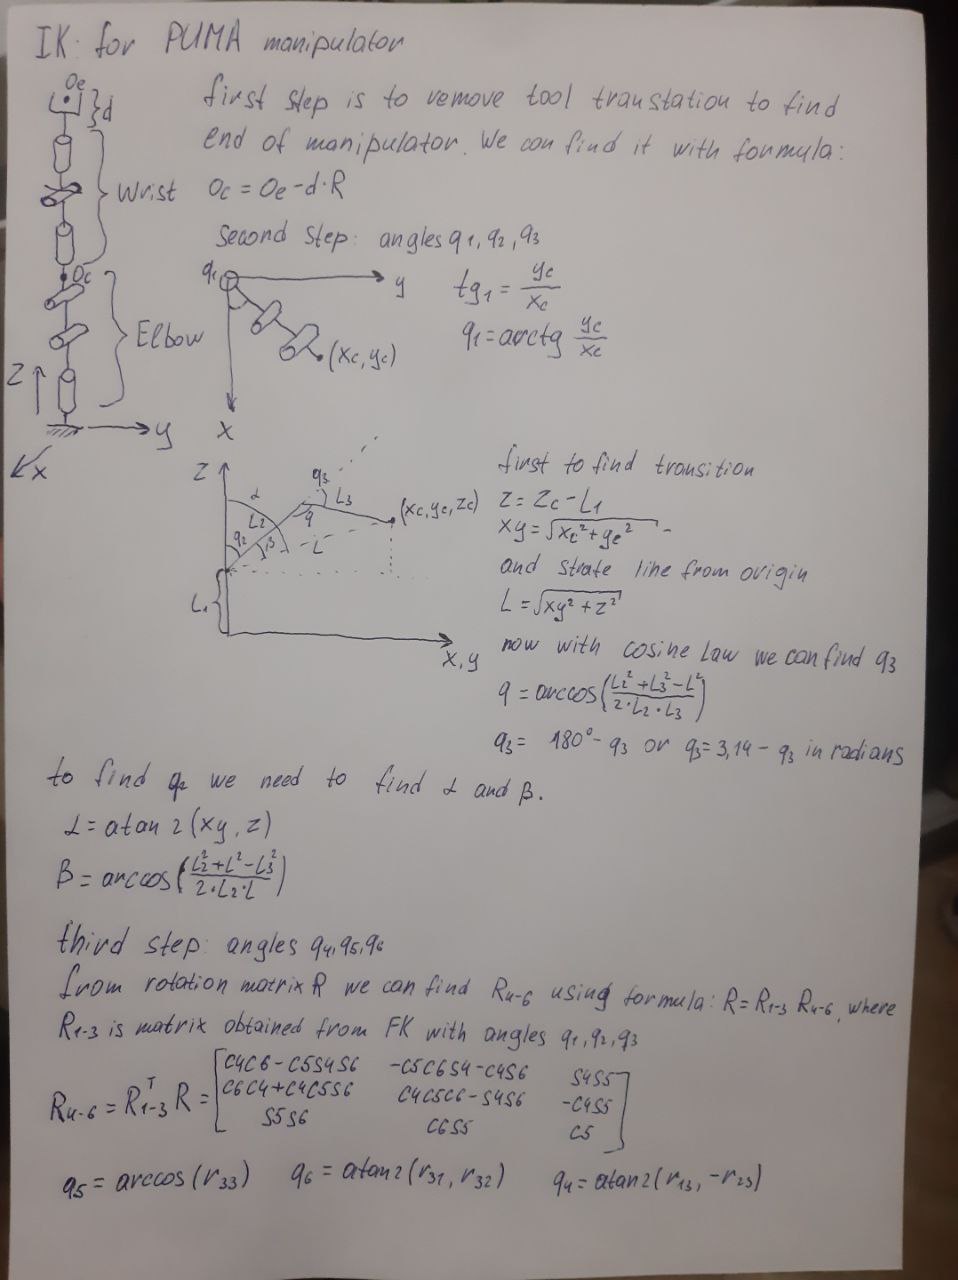 IK for PUMA manipulator
Oe
d
first step is to remove tool translation to find
end of manipulator. We can find it with formula:
Wrist
Oc = Oe - d·R
second step: angles q1, q2, q3
Oc
Elbow
q1
y
(xc, yc)
x
tg1 = yc/xc
q1 = arctg yc/xc
z
y
x
z
α
L2
q3
L3
q
(xc, yc, zc)
q2
β
L
L1
x, y
first to find transition
z = zc - L1
xy = √(xc² + yc²)
and strate line from origin
L = √(xy² + z²)
now with cosine Law we can find q3
q = arccos((L2² + L3² - L²)/(2·L2·L3))
q3 = 180° - q3 or q3 = 3,14 - q3 in radians
to find q2 we need to find α and β.
α = atan2(xy, z)
β = arccos((L2² + L² - L3²)/(2·L2·L))
third step: angles q4, q5, q6
from rotation matrix R we can find R4-6 using formula: R = R1-3 R4-6, where
R1-3 is matrix obtained from FK with angles q1, q2, q3
R4-6 = R1-3ᵀ R = [C4C6 - C5S4S6 -C5C6S4 - C4S6 S4S5
C6C4 + C4C5S6 C4C5C6 - S4S6 -C4S5
S5S6 C6S5 C5]
q5 = arccos(r33) q6 = atan2(r31, r32) q4 = atan2(r13, -r23)